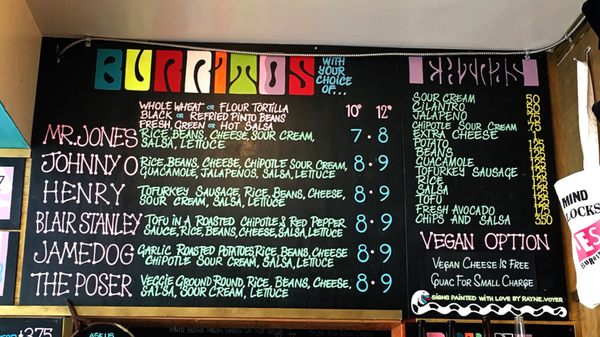 BURRITOS
WITH
YOUR
CHOICE
OF...
WHOLE WHEAT OR FLOUR TORTILLA
BLACK OR REFRIED PINTO BEANS
FRESH GREEN OR HOT SALSA
10" 12"
MR. JONES RICE, BEANS, CHEESE, SOUR CREAM, SALSA, LETTUCE 7 - 8
JOHNNY O RICE, BEANS, CHEESE, CHIPOTLE SOUR CREAM, GUACAMOLE, JALAPENOS, SALSA, LETTUCE 8 - 9
HENRY TOFURKEY SAUSAGE, RICE, BEANS, CHEESE, SOUR CREAM, SALSA, LETTUCE 8 - 9
BLAIR STANLEY TOFU IN A ROASTED CHIPOTLE & RED PEPPER SAUCE, RICE, BEANS, CHEESE, SALSA, LETTUCE 8 - 9
JAMEDOG GARLIC ROASTED POTATOES, RICE, BEANS, CHEESE CHIPOTLE SOUR CREAM, SALSA, LETTUCE 8 - 9
THE POSER VEGGIE GROUND ROUND, RICE, BEANS, CHEESE, SALSA, SOUR CREAM, LETTUCE 8 - 9
SOUR CREAM .50
CILANTRO .50
JALAPENO
CHIPOTLE SOUR CREAM .75
EXTRA CHEESE 1
POTATO
BEANS
GUACAMOLE
TOFURKEY SAUSAGE
RICE
SALSA
TOFU
FRESH AVOCADO
CHIPS AND SALSA 3.50
VEGAN OPTION
VEGAN CHEESE IS FREE
GUAC FOR SMALL CHARGE
SIGNS PAINTED WITH LOVE BY RAYNE.VOYER
MIND
3.75
ASK US